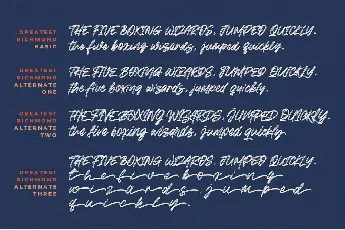 GREATEST
RICHMOND
BASIC
THE FIVE BOXING WIZARDS, JUMPED QUICKLY.
the five boxing wizards, jumped quickly.
GREATEST
RICHMOND
ALTERNATE
ONE
THE FIVE BOXING WIZARDS, JUMPED QUICKLY.
the five boxing wizards, jumped quickly.
GREATEST
RICHMOND
ALTERNATE
TWO
THE FIVE BOXING WIZARDS, JUMPED QUICKLY.
the five boxing wizards, jumped quickly.
GREATEST
RICHMOND
ALTERNATE
THREE
THE FIVE BOXING WIZARDS, JUMPED QUICKLY.
the five boxing
wizards, jumped
quickly.